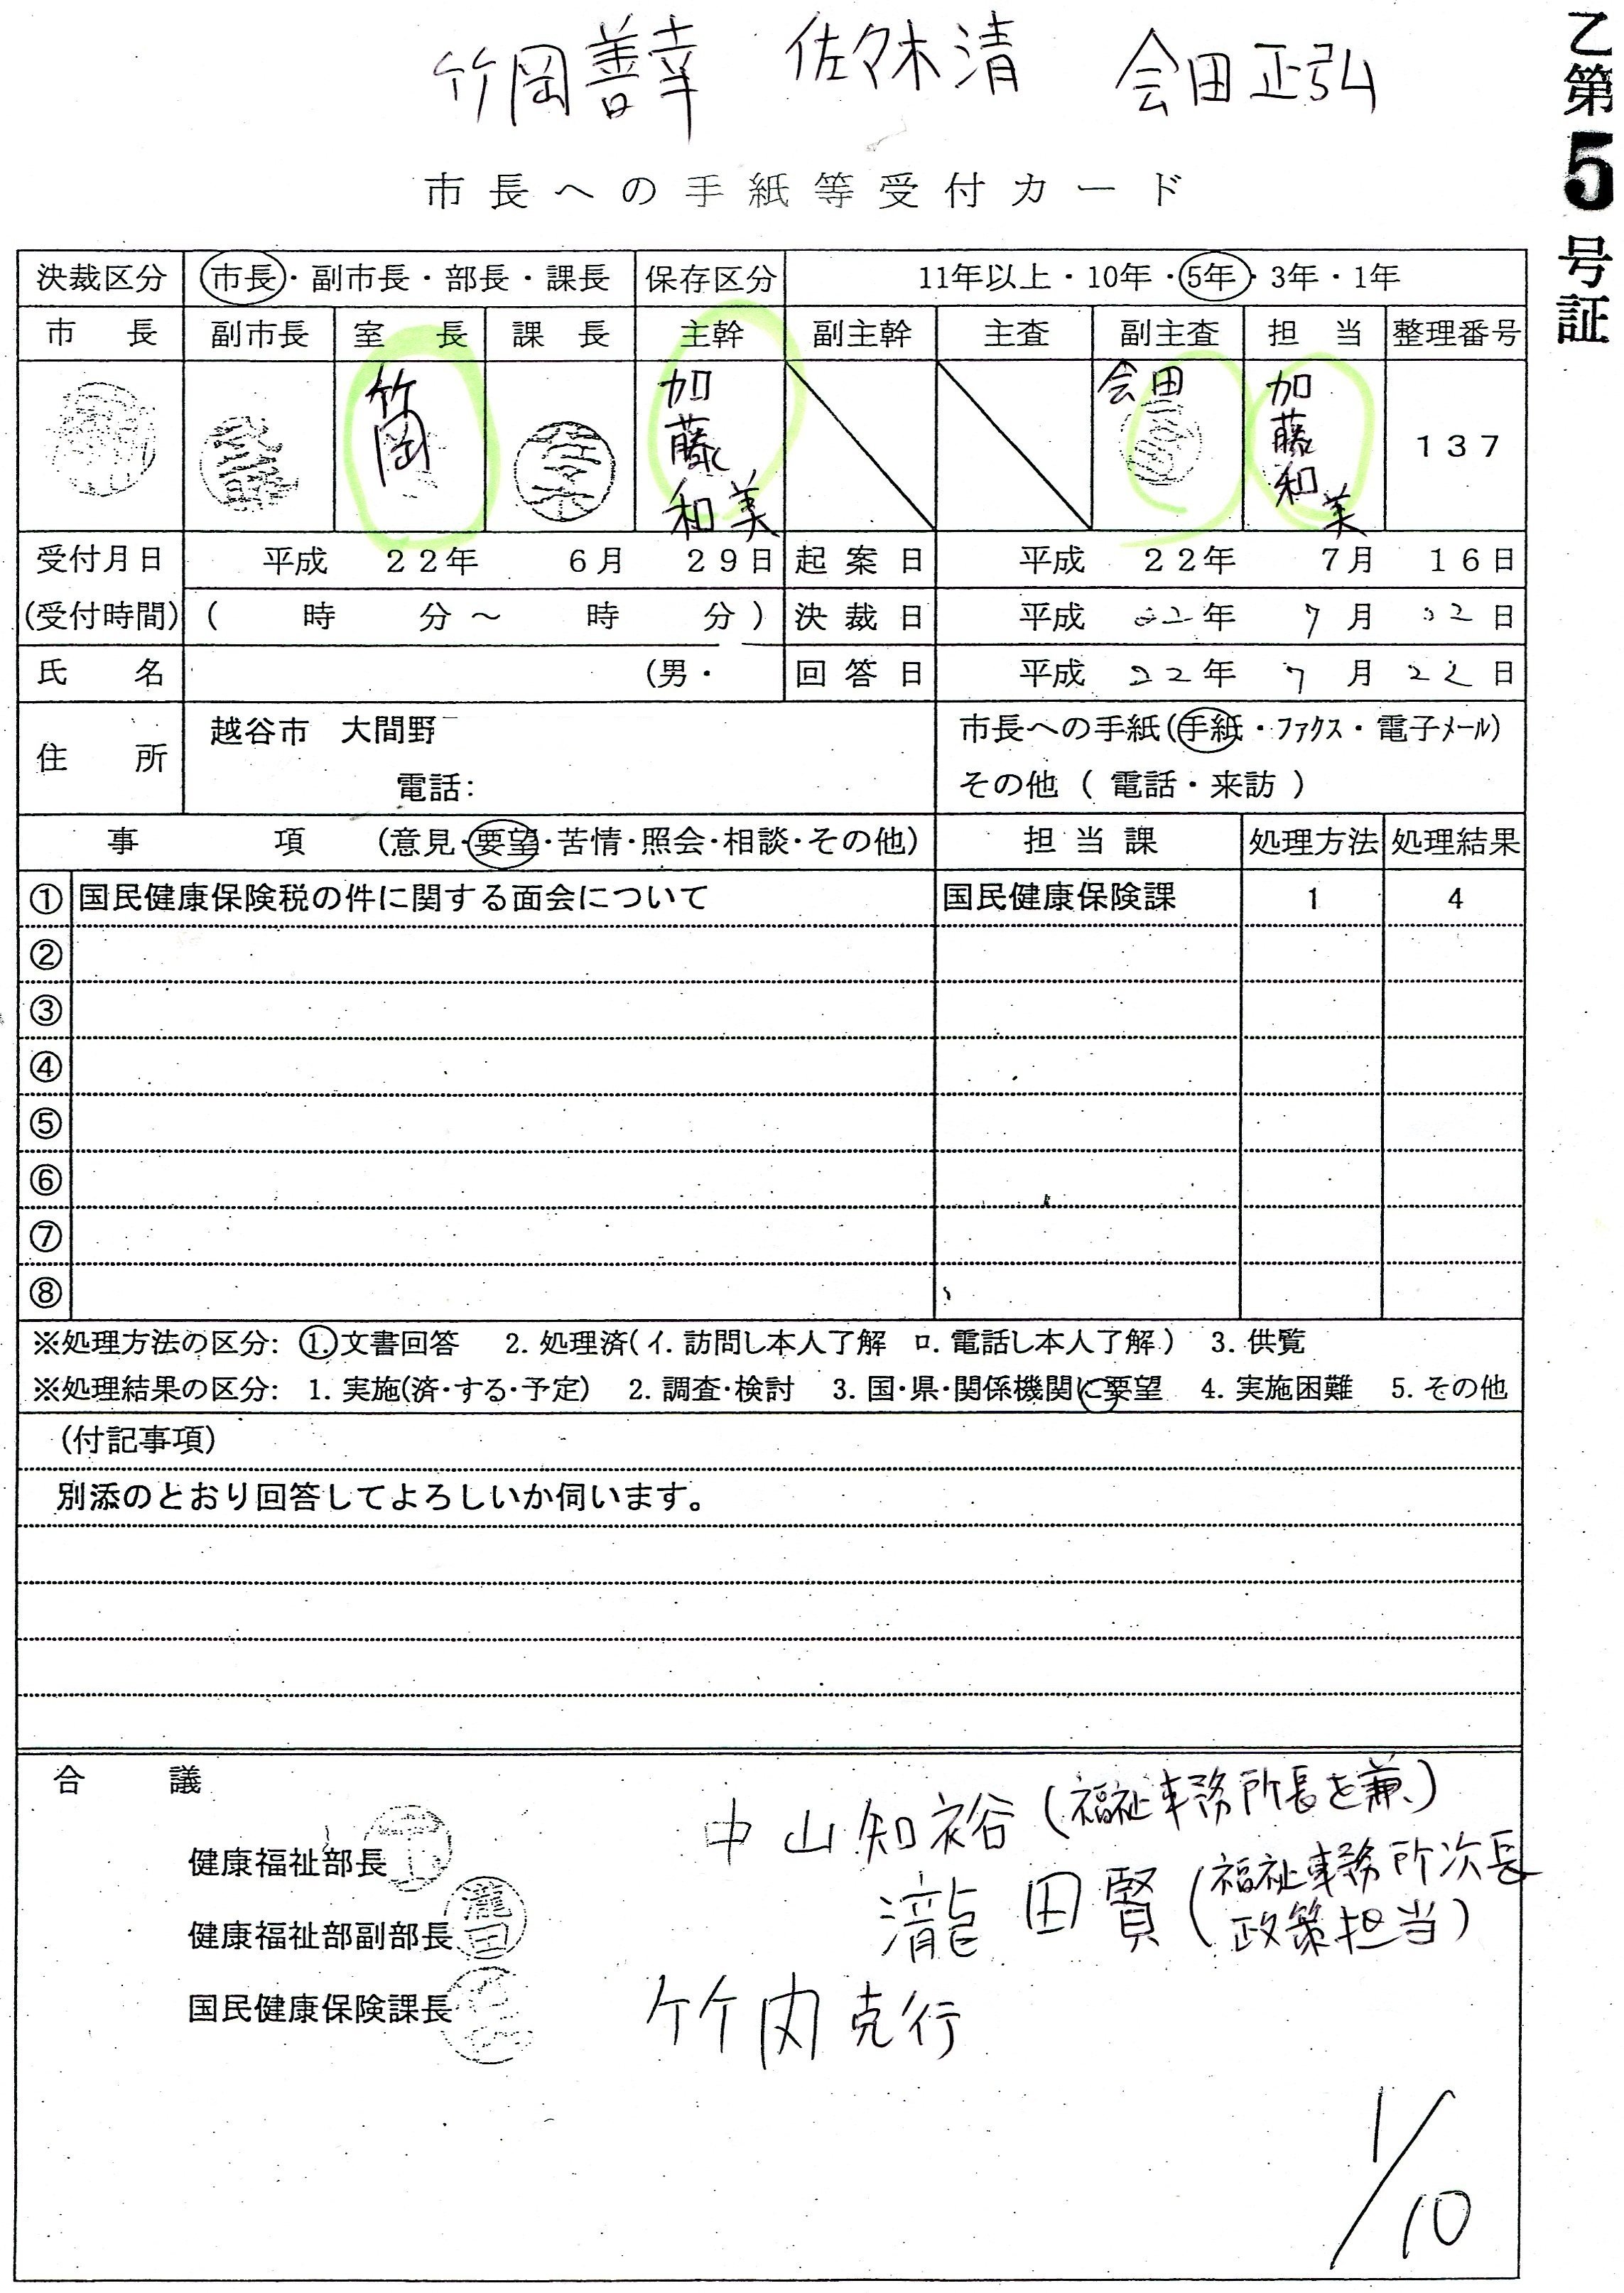 竹岡善幸 佐々木清 会田正弘
乙第5号証
市長への手紙等受付カード
決裁区分 市長・副市長・部長・課長 保存区分 11年以上・10年・5年・3年・1年
市長 副市長 室長 課長 主幹 副主幹 主査 副主査 担当 整理番号
竹岡 加藤和美 会田 加藤和美 137
受付月日 平成 22年 6月 29日 起案日 平成 22年 7月 16日
(受付時間) ( 時 分～ 時 分) 決裁日 平成 年 7月 日
氏名 (男・ 回答日 平成 22年 7月 22日
住所 越谷市 大間野 市長への手紙(手紙・ファクス・電子メール)
電話: その他 ( 電話・来訪 )
事項 (意見・要望・苦情・照会・相談・その他) 担当課 処理方法 処理結果
① 国民健康保険税の件に関する面会について 国民健康保険課 1 4
②
③
④
⑤
⑥
⑦
⑧
※処理方法の区分: 1. 文書回答 2. 処理済(イ. 訪問し本人了解 ロ. 電話し本人了解) 3. 供覧
※処理結果の区分: 1. 実施(済・する・予定) 2. 調査・検討 3. 国・県・関係機関に要望 4. 実施困難 5. その他
(付記事項)
別添のとおり回答してよろしいか伺います。
合議
健康福祉部長 中山知裕(福祉事務所長を兼)
健康福祉部副部長 瀧田 瀧田賢(福祉事務所次長
政策担当)
国民健康保険課長 竹内克行
1/10